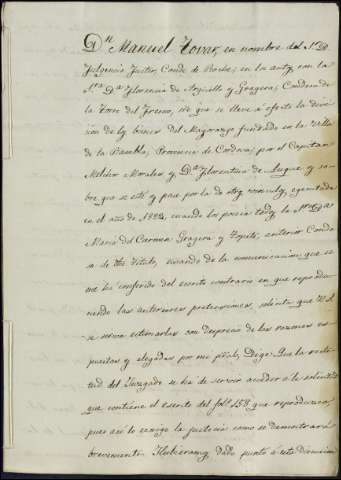 Dn. Manuel Tovar, en nombre del Sr. D.
Fulgencio Fuster, Conde de Roche; en los autos con la
Sra. Da. Florencia de Arguello y Gragera, Condesa de
la Torre del Fresno, sre que se lleve á efecto la divi
sion de los bienes del Mayorazgo fundado en la Villa
de la Rambla, Provincia de Cordova, por el Capitan
Melchor Morales y Da. Florentina de Luque, y so
bre que se esté y pase por la de otros vinculos, egecutada
en el año de 1824, cuando los poseia todos la Sra. Da.
Maria del Carmen Gragera y Topete, anterior Conde
sa de dho Titulo, usando de la comunicacion que se
me ha conferido del escrito contrario en que reprodu
ciendo las anteriores pretensiones, solicita que V.S.
se sirva estimarlas con desprecio de las razones es
puestas y alegadas por mi pte, Digo: Que la recti
tud del Juzgado se ha de servir acceder á la solicitud
que contiene el escrito del fol. 158 que reproduzco,
pues asi lo exige la justicia como se demostrará
brevemente. Habiendose dado punto á esta discusion